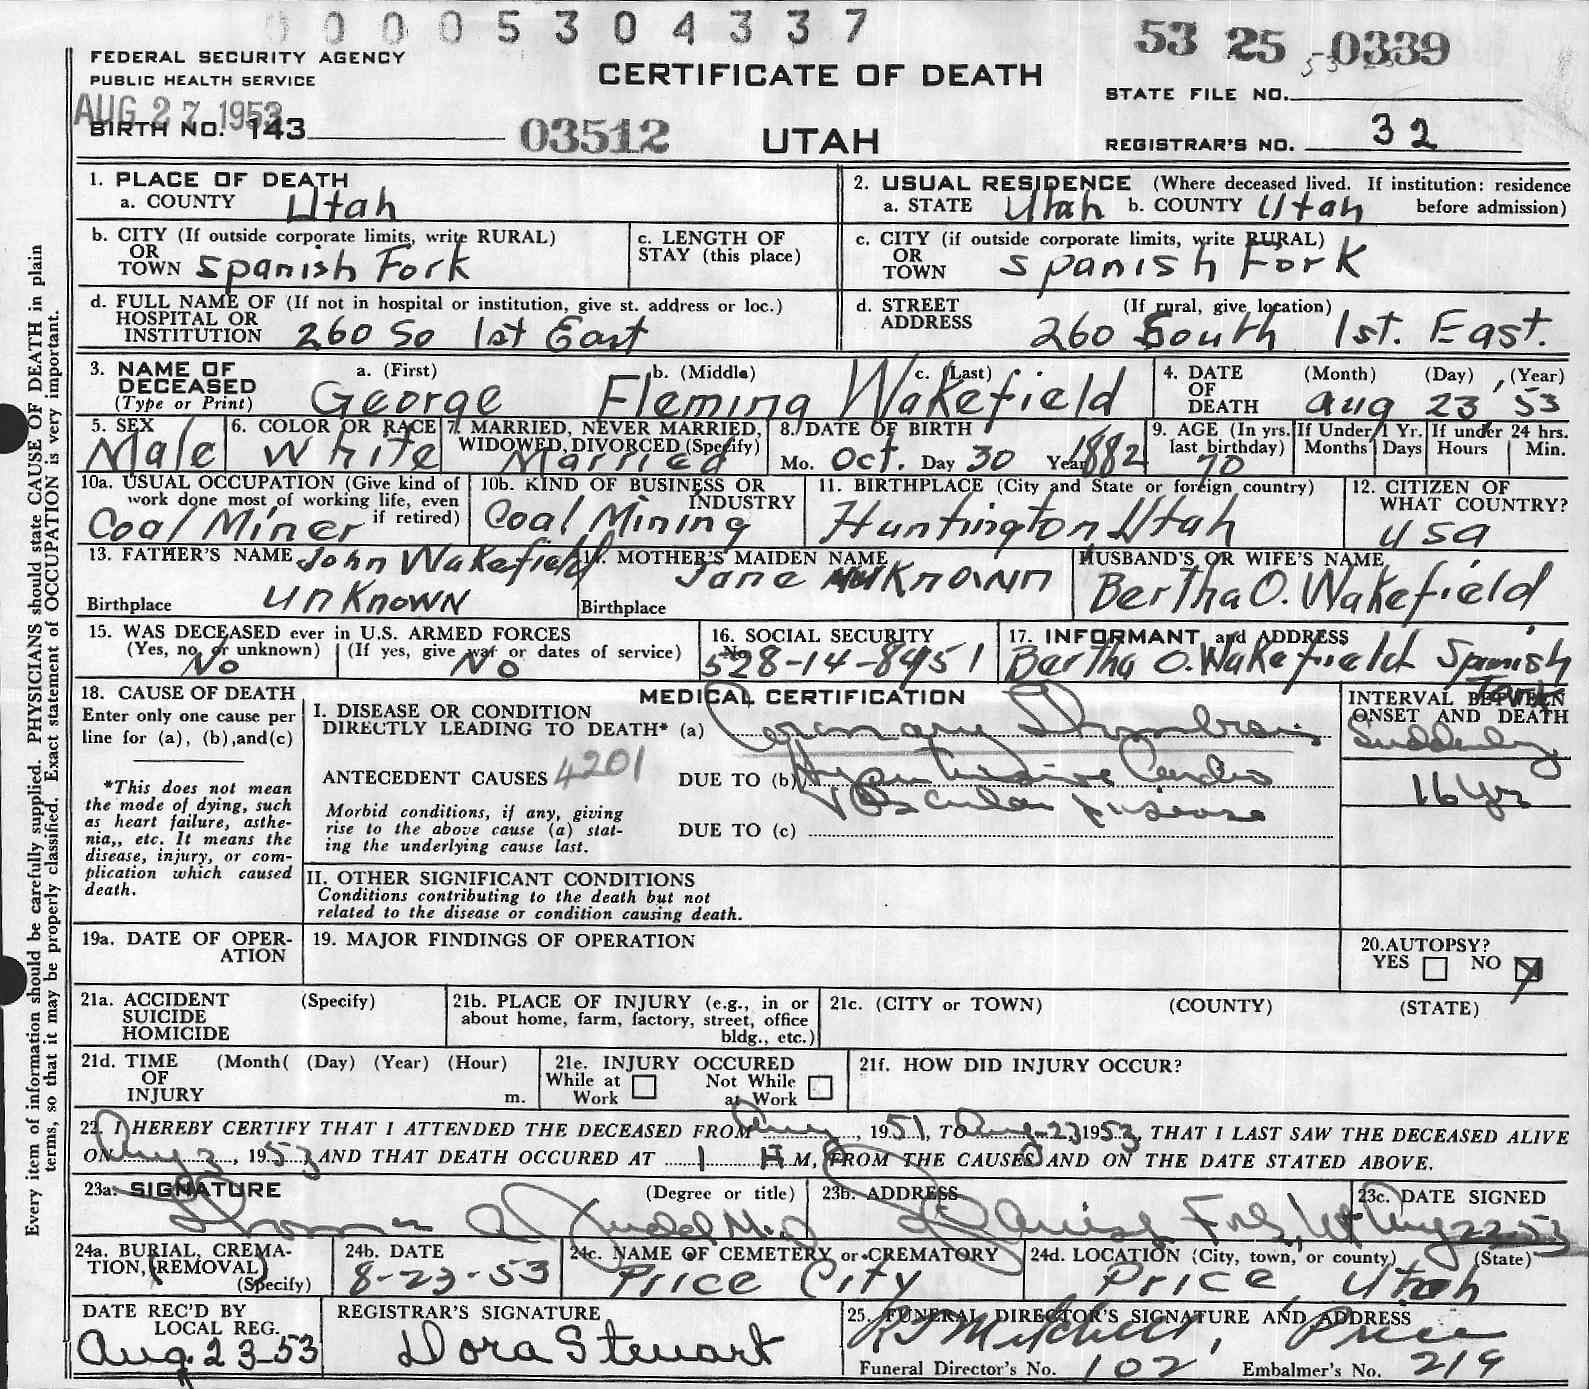 0 0 0 0 5 3 0 4 3 3 7
53 25 0339
FEDERAL SECURITY AGENCY
PUBLIC HEALTH SERVICE
CERTIFICATE OF DEATH
STATE FILE NO.
AUG 27 1953
BIRTH NO. 143
03512
UTAH
REGISTRAR'S NO. 32
1. PLACE OF DEATH
a. COUNTY Utah
2. USUAL RESIDENCE (Where deceased lived. If institution: residence before admission)
a. STATE Utah b. COUNTY Utah
b. CITY (If outside corporate limits, write RURAL)
OR
TOWN Spanish Fork
c. LENGTH OF
STAY (this place)
c. CITY (if outside corporate limits, write RURAL)
OR
TOWN Spanish Fork
d. FULL NAME OF (If not in hospital or institution, give st. address or loc.)
HOSPITAL OR
INSTITUTION 260 So 1st East
d. STREET (If rural, give location)
ADDRESS 260 South 1st. East.
3. NAME OF
DECEASED
(Type or Print)
a. (First) b. (Middle) c. (Last)
George Fleming Wakefield
4. DATE (Month) (Day) (Year)
OF
DEATH Aug 23, 53
5. SEX
Male
6. COLOR OR RACE
White
7. MARRIED, NEVER MARRIED,
WIDOWED, DIVORCED (Specify)
Married
8. DATE OF BIRTH
Mo. Oct. Day 30 Year 1882
9. AGE (In yrs. last birthday)
70
If Under 1 Yr. If under 24 hrs.
Months Days Hours Min.
10a. USUAL OCCUPATION (Give kind of
work done most of working life, even
if retired)
Coal Miner
10b. KIND OF BUSINESS OR
INDUSTRY
Coal Mining
11. BIRTHPLACE (City and State or foreign country)
Huntington Utah
12. CITIZEN OF
WHAT COUNTRY?
USA
13. FATHER'S NAME John Wakefield
Birthplace unknown
14. MOTHER'S MAIDEN NAME
Jane unknown
Birthplace
HUSBAND'S OR WIFE'S NAME
Bertha O. Wakefield
15. WAS DECEASED ever in U.S. ARMED FORCES
(Yes, no, or unknown) (If yes, give war or dates of service)
No No
16. SOCIAL SECURITY
No.
528-14-8951
17. INFORMANT and ADDRESS
Bertha O. Wakefield Spanish
Fork
18. CAUSE OF DEATH
Enter only one cause per
line for (a), (b),and(c)
*This does not mean
the mode of dying, such
as heart failure, asthe-
nia,, etc. It means the
disease, injury, or com-
plication which caused
death.
MEDICAL CERTIFICATION
I. DISEASE OR CONDITION
DIRECTLY LEADING TO DEATH* (a) Coronary Thrombosis
ANTECEDENT CAUSES 4201
DUE TO (b) Hypertensive Cardio
Vascular Disease
Morbid conditions, if any, giving
rise to the above cause (a) stat-
ing the underlying cause last.
DUE TO (c)
INTERVAL BETWEEN
ONSET AND DEATH
Suddenly
16 yrs
II. OTHER SIGNIFICANT CONDITIONS
Conditions contributing to the death but not
related to the disease or condition causing death.
19a. DATE OF OPER-
ATION
19. MAJOR FINDINGS OF OPERATION
20. AUTOPSY?
YES NO X
21a. ACCIDENT (Specify)
SUICIDE
HOMICIDE
21b. PLACE OF INJURY (e.g., in or
about home, farm, factory, street, office
bldg., etc.)
21c. (CITY or TOWN) (COUNTY) (STATE)
21d. TIME (Month( (Day) (Year) (Hour)
OF
INJURY m.
21e. INJURY OCCURED
While at Work Not While at Work
21f. HOW DID INJURY OCCUR?
22. I HEREBY CERTIFY THAT I ATTENDED THE DECEASED FROM , 1951, TO Aug 23 1953, THAT I LAST SAW THE DECEASED ALIVE
ON Aug 3, 1953 AND THAT DEATH OCCURED AT 1 A M, FROM THE CAUSES AND ON THE DATE STATED ABOVE.
23a. SIGNATURE (Degree or title)
Thomas A Judd M.D
23b. ADDRESS
Spanish Fork, Ut
23c. DATE SIGNED
Aug 22 53
24a. BURIAL, CREMA-
TION, (REMOVAL)
(Specify)
24b. DATE
8-23-53
24c. NAME OF CEMETERY or CREMATORY
Price City
24d. LOCATION (City, town, or county) (State)
Price, Utah
DATE REC'D BY
LOCAL REG.
Aug. 23-53
REGISTRAR'S SIGNATURE
Dora Stewart
25. FUNERAL DIRECTOR'S SIGNATURE AND ADDRESS
Mitchell, Price
Funeral Director's No. 102 Embalmer's No. 219
Every item of information should be carefully supplied. PHYSICIANS should state CAUSE OF DEATH in plain
terms, so that it may be properly classified. Exact statement of OCCUPATION is very important.